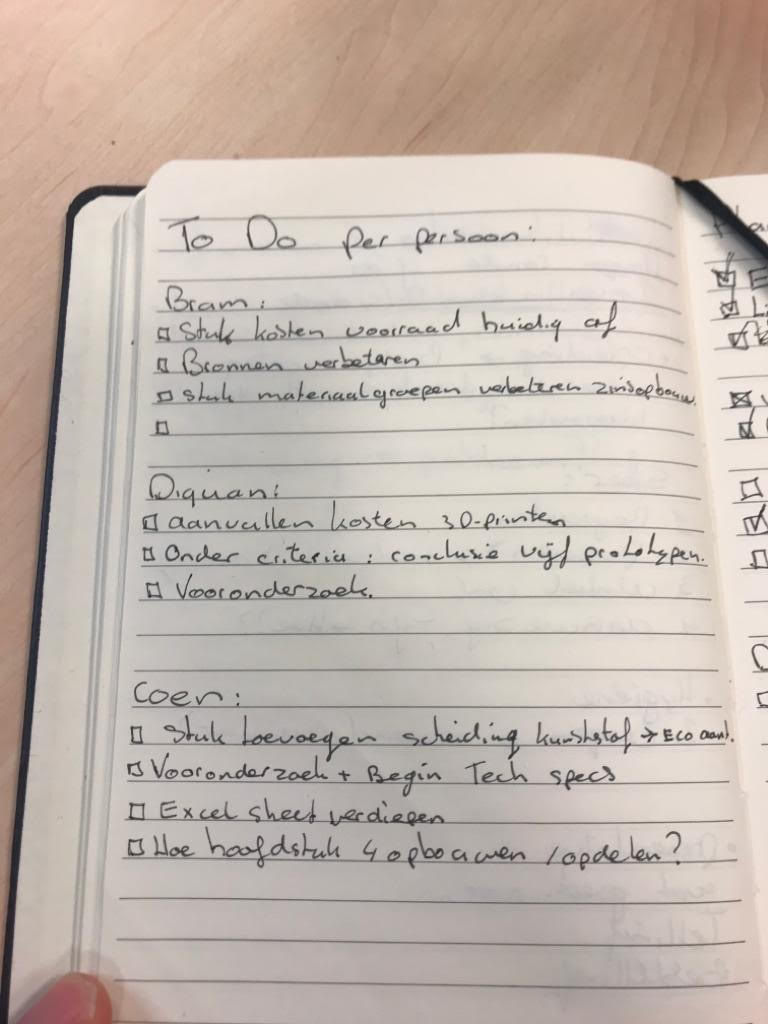 To Do per persoon:
Bram:
Stuk kosten voorraad huidig af
Bronnen verbeteren
Stuk materiaalgroepen verbeteren zinsopbouw.
Diquan:
aanvullen kosten 3D-printen
Onder criteria: conclusie vijf prototypen.
Vooronderzoek.
Coen:
Stuk toevoegen scheiding kunststof → Eco aant.
Vooronderzoek + Begin Tech specs
Excel sheet verdiepen
Hoe hoofdstuk 4 opbouwen / opdelen?